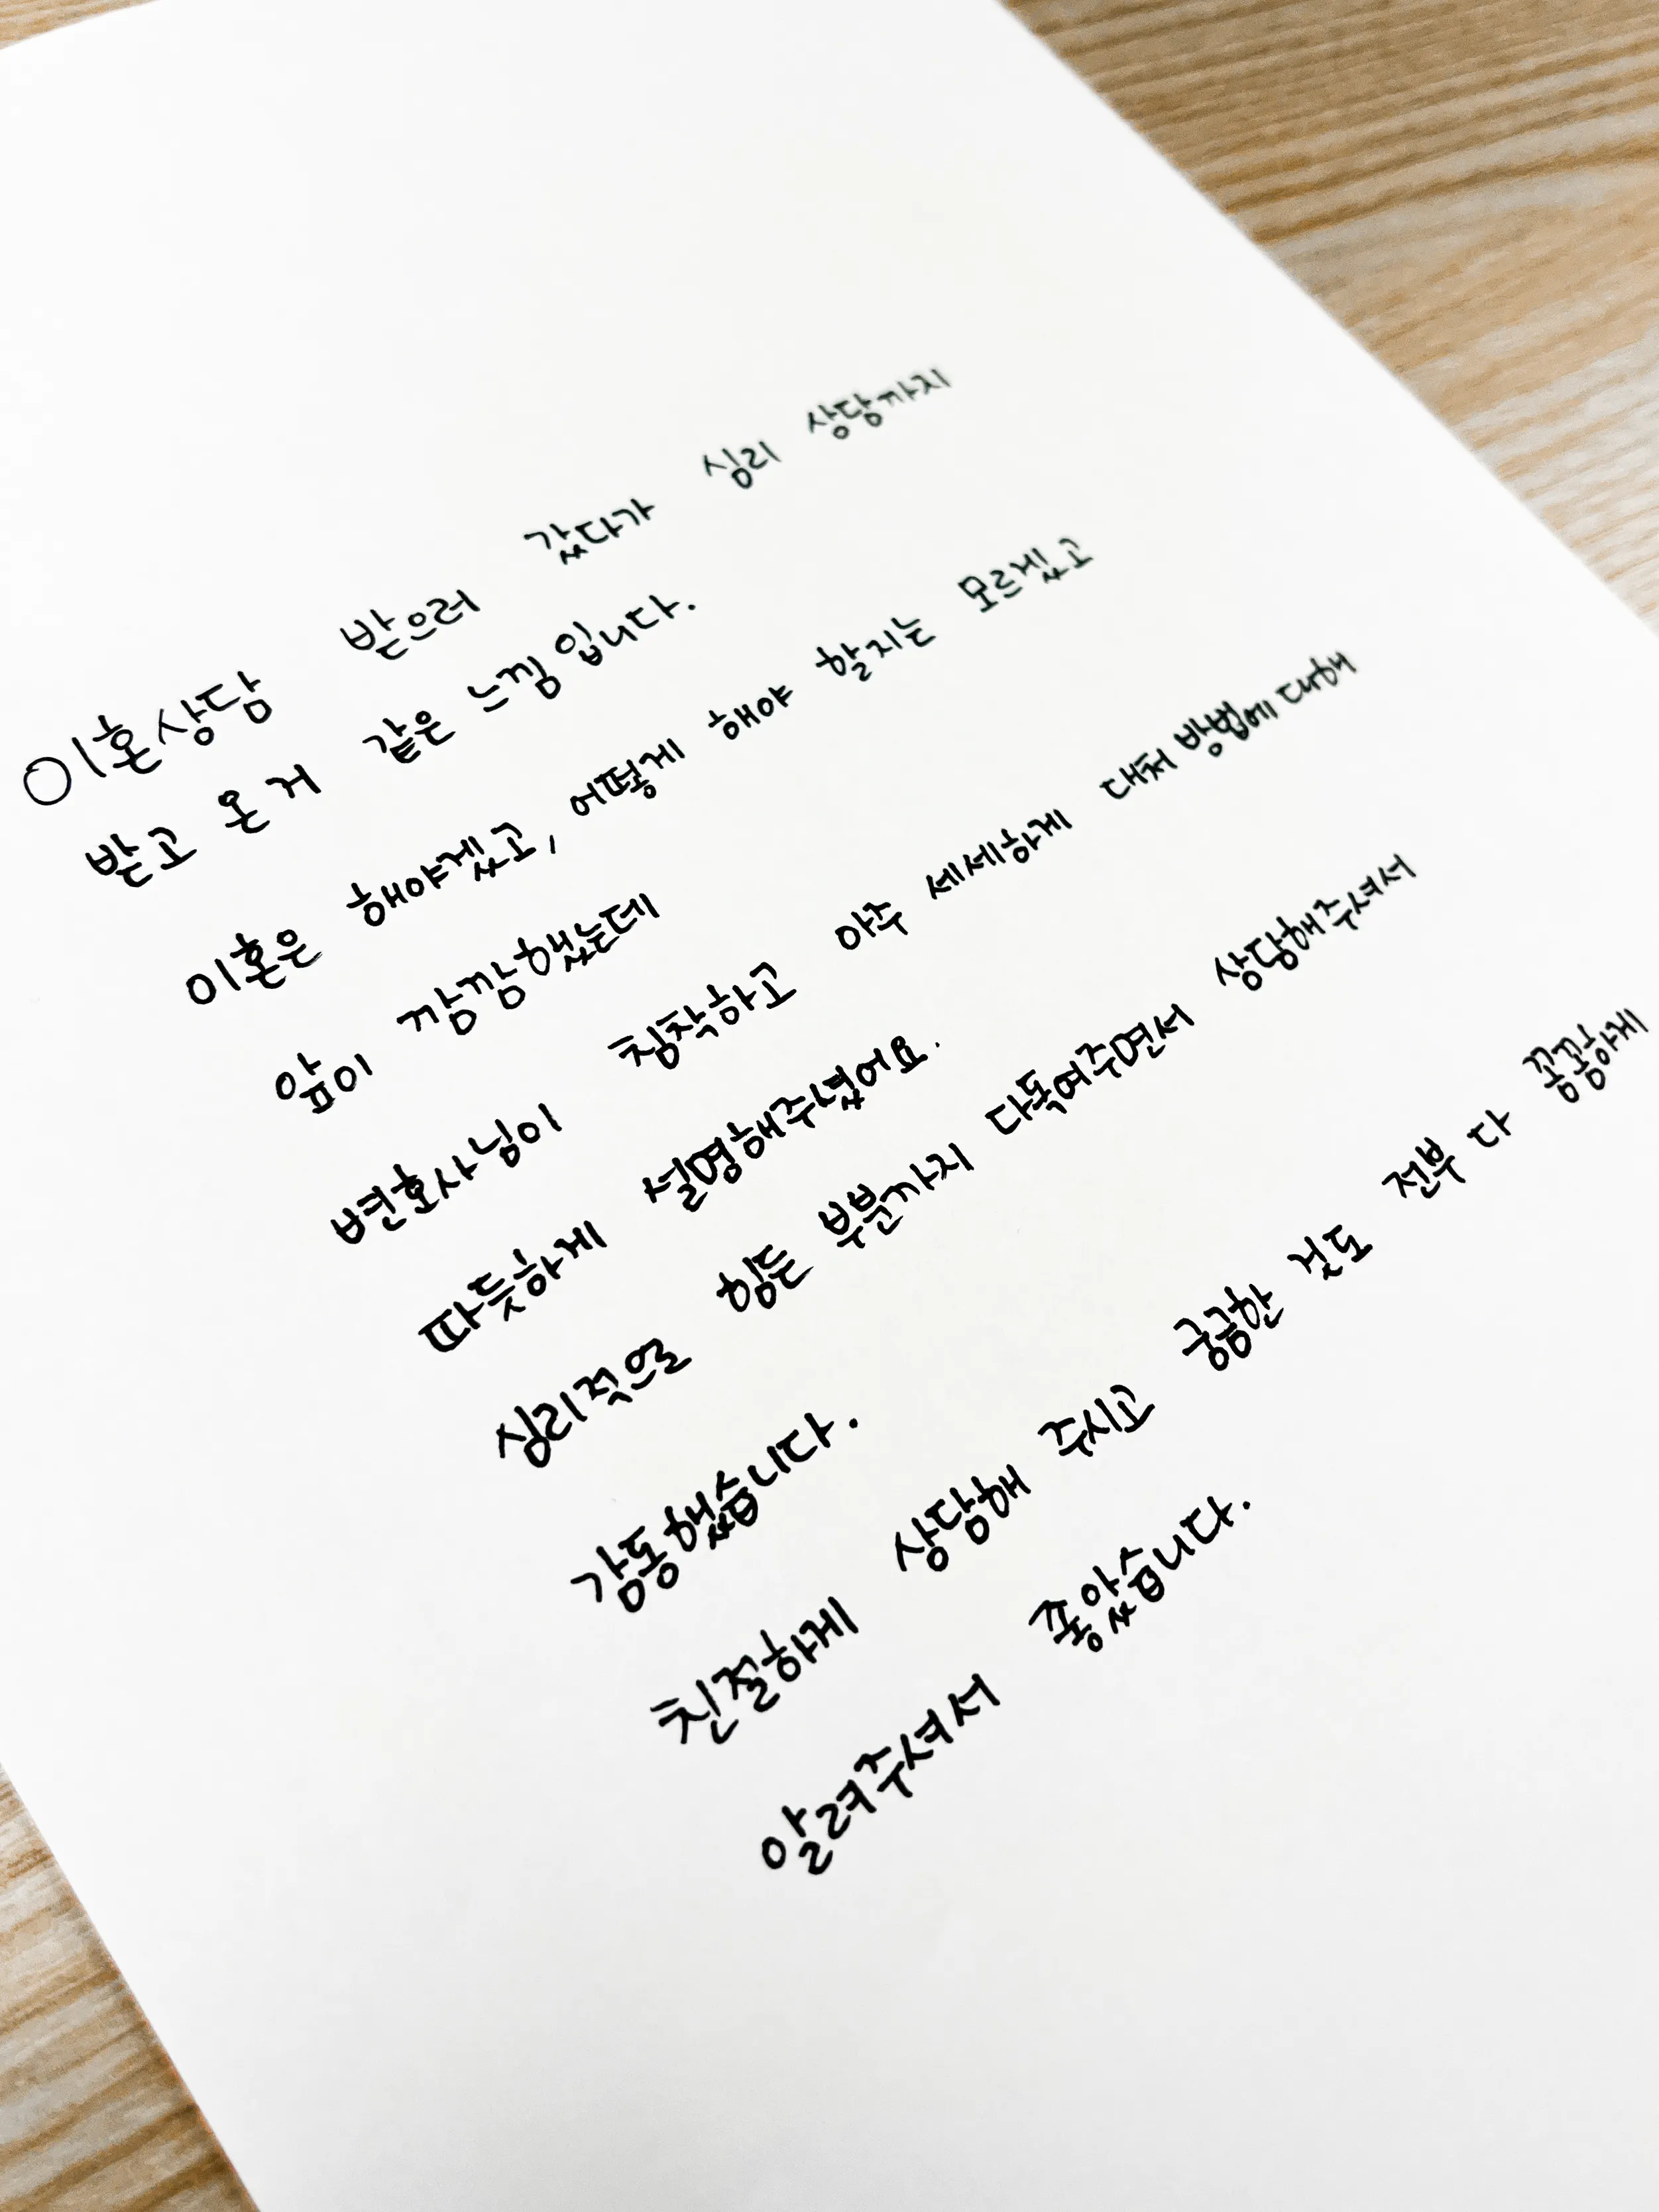 이혼상담 받으러 갔다가 심리 상담까지
받고 온 거 같은 느낌입니다.
이혼은 해야겠고, 어떻게 해야 할지는 모르겠고
앞이 깜깜했는데
변호사님이 침착하고 아주 세세하게 대처 방법에 대해
따듯하게 설명해주셨어요.
심리적으로 힘든 부분까지 다독여주면서 상담해주셔서
감동했습니다.
친절하게 상담해 주시고 궁금한 것도 전부 다 꼼꼼하게
알려주셔서 좋았습니다.